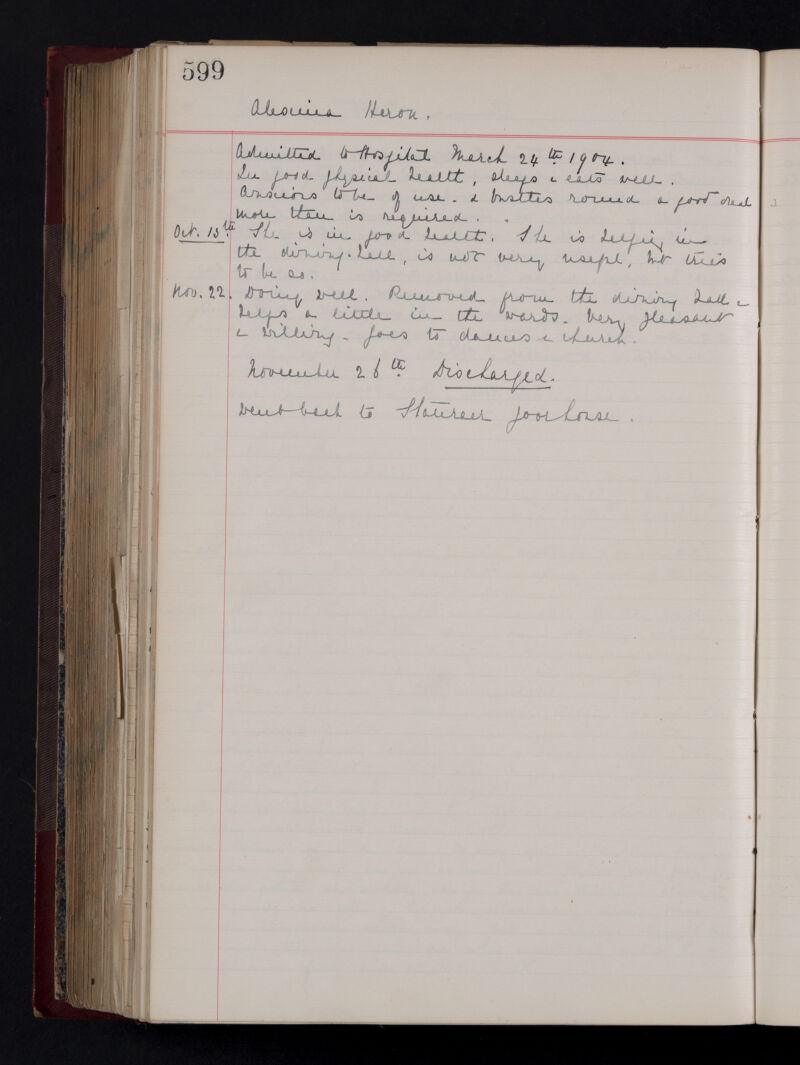 599
Heron.
Admitted to Hospital March 24th 1904.
In good physical health, sleeps & eats well.
Anxious to be of use. & bustles round a good deal
more than is required.
Oct. 13th She is in good health. She is helping in
the dining-hall, is not very useful, but tries
to be so.
Nov. 22. Doing well. Removed from the dining hall &
helps a little in the wards. Very pleasant
& willing. Goes to dances & church.
November 26th Discharged.
Went back to Stranraer poorhouse.